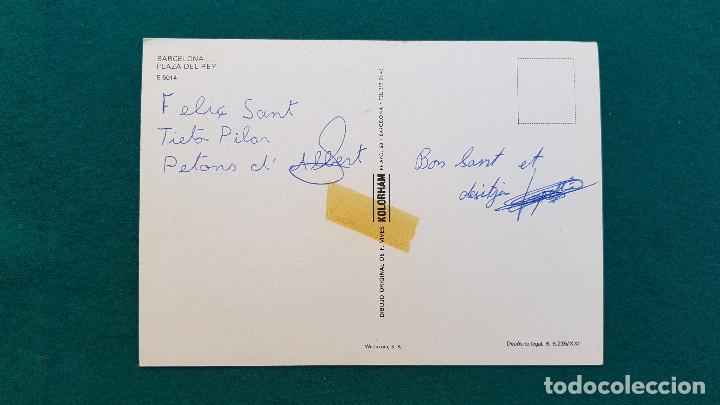 BARCELONA
PLAZA DEL REY
E 5014
Feliç Sant
Tieta Pilar
Petons d' Albert
Bon Sant et
desitja
DIBUJO ORIGINAL DE F. VIVES KOLORHAM BARCELONA
Depósito legal. B.
todocoleccion